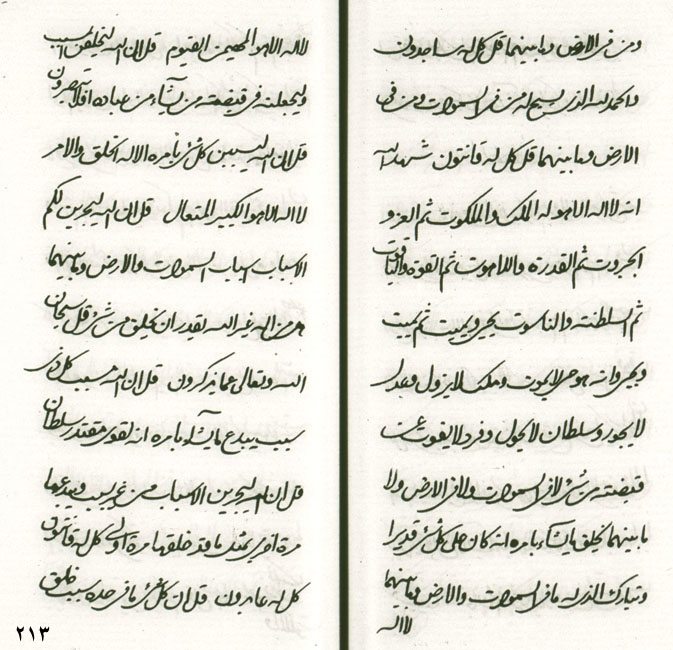 ومن فی الارض وما بینهما قل کل له ساجدون
والحمد لله الذی یسبح له من فی السموات ومن فی
الارض وما بینهما قل کل له قانتون شهد الله
انه لا اله الا هو له الملک والملکوت ثم العز و
الجبروت ثم القدرة واللاهوت ثم القوة والیاقوت
ثم السلطنة والناسوت یحیی ویمیت ثم یمیت
ویحیی وانه هو حی لا یموت وملک لا یزول وعدل
لا یجور وسلطان لا یحول وفرد لا یفوت عن
قبضته من شیء لا فی السموات ولا فی الارض ولا
ما بینهما یخلق ما یشاء بامره انه کان علی کل شیء قدیرا
وتبارک الذی له ما فی السموات والارض وما بینهما
لا اله
لا اله الا هو المهیمن القیوم قل ان الله لیخلقن السبب
ولیجعلنه فی قبضته من یشاء من عباده افلا تبصرون
قل ان الله لیسببن کل شیء بامره الا له الخلق والامر
لا اله الا هو الکبیر المتعال قل ان الله لیجرین لکم
الاسباب اسباب السموات والارض وما بینهما
هل من اله غیر الله یقدر ان یخلق من شیء قل سبحان
الله وتعالی عما یذکرون قل ان الله مسبب کل ذی
سبب یبدع ما یشاء بامره انه لقوی مقتدر سلطان
قل ان الله لیجرین الاسباب من غیر سبب ویبدعها
مرة اخری بمثل ما قد خلقها مرة اولی کل له قانتون
کل له عابدون قل ان کل شیء ما فی حده سبب خلق
٢١٣